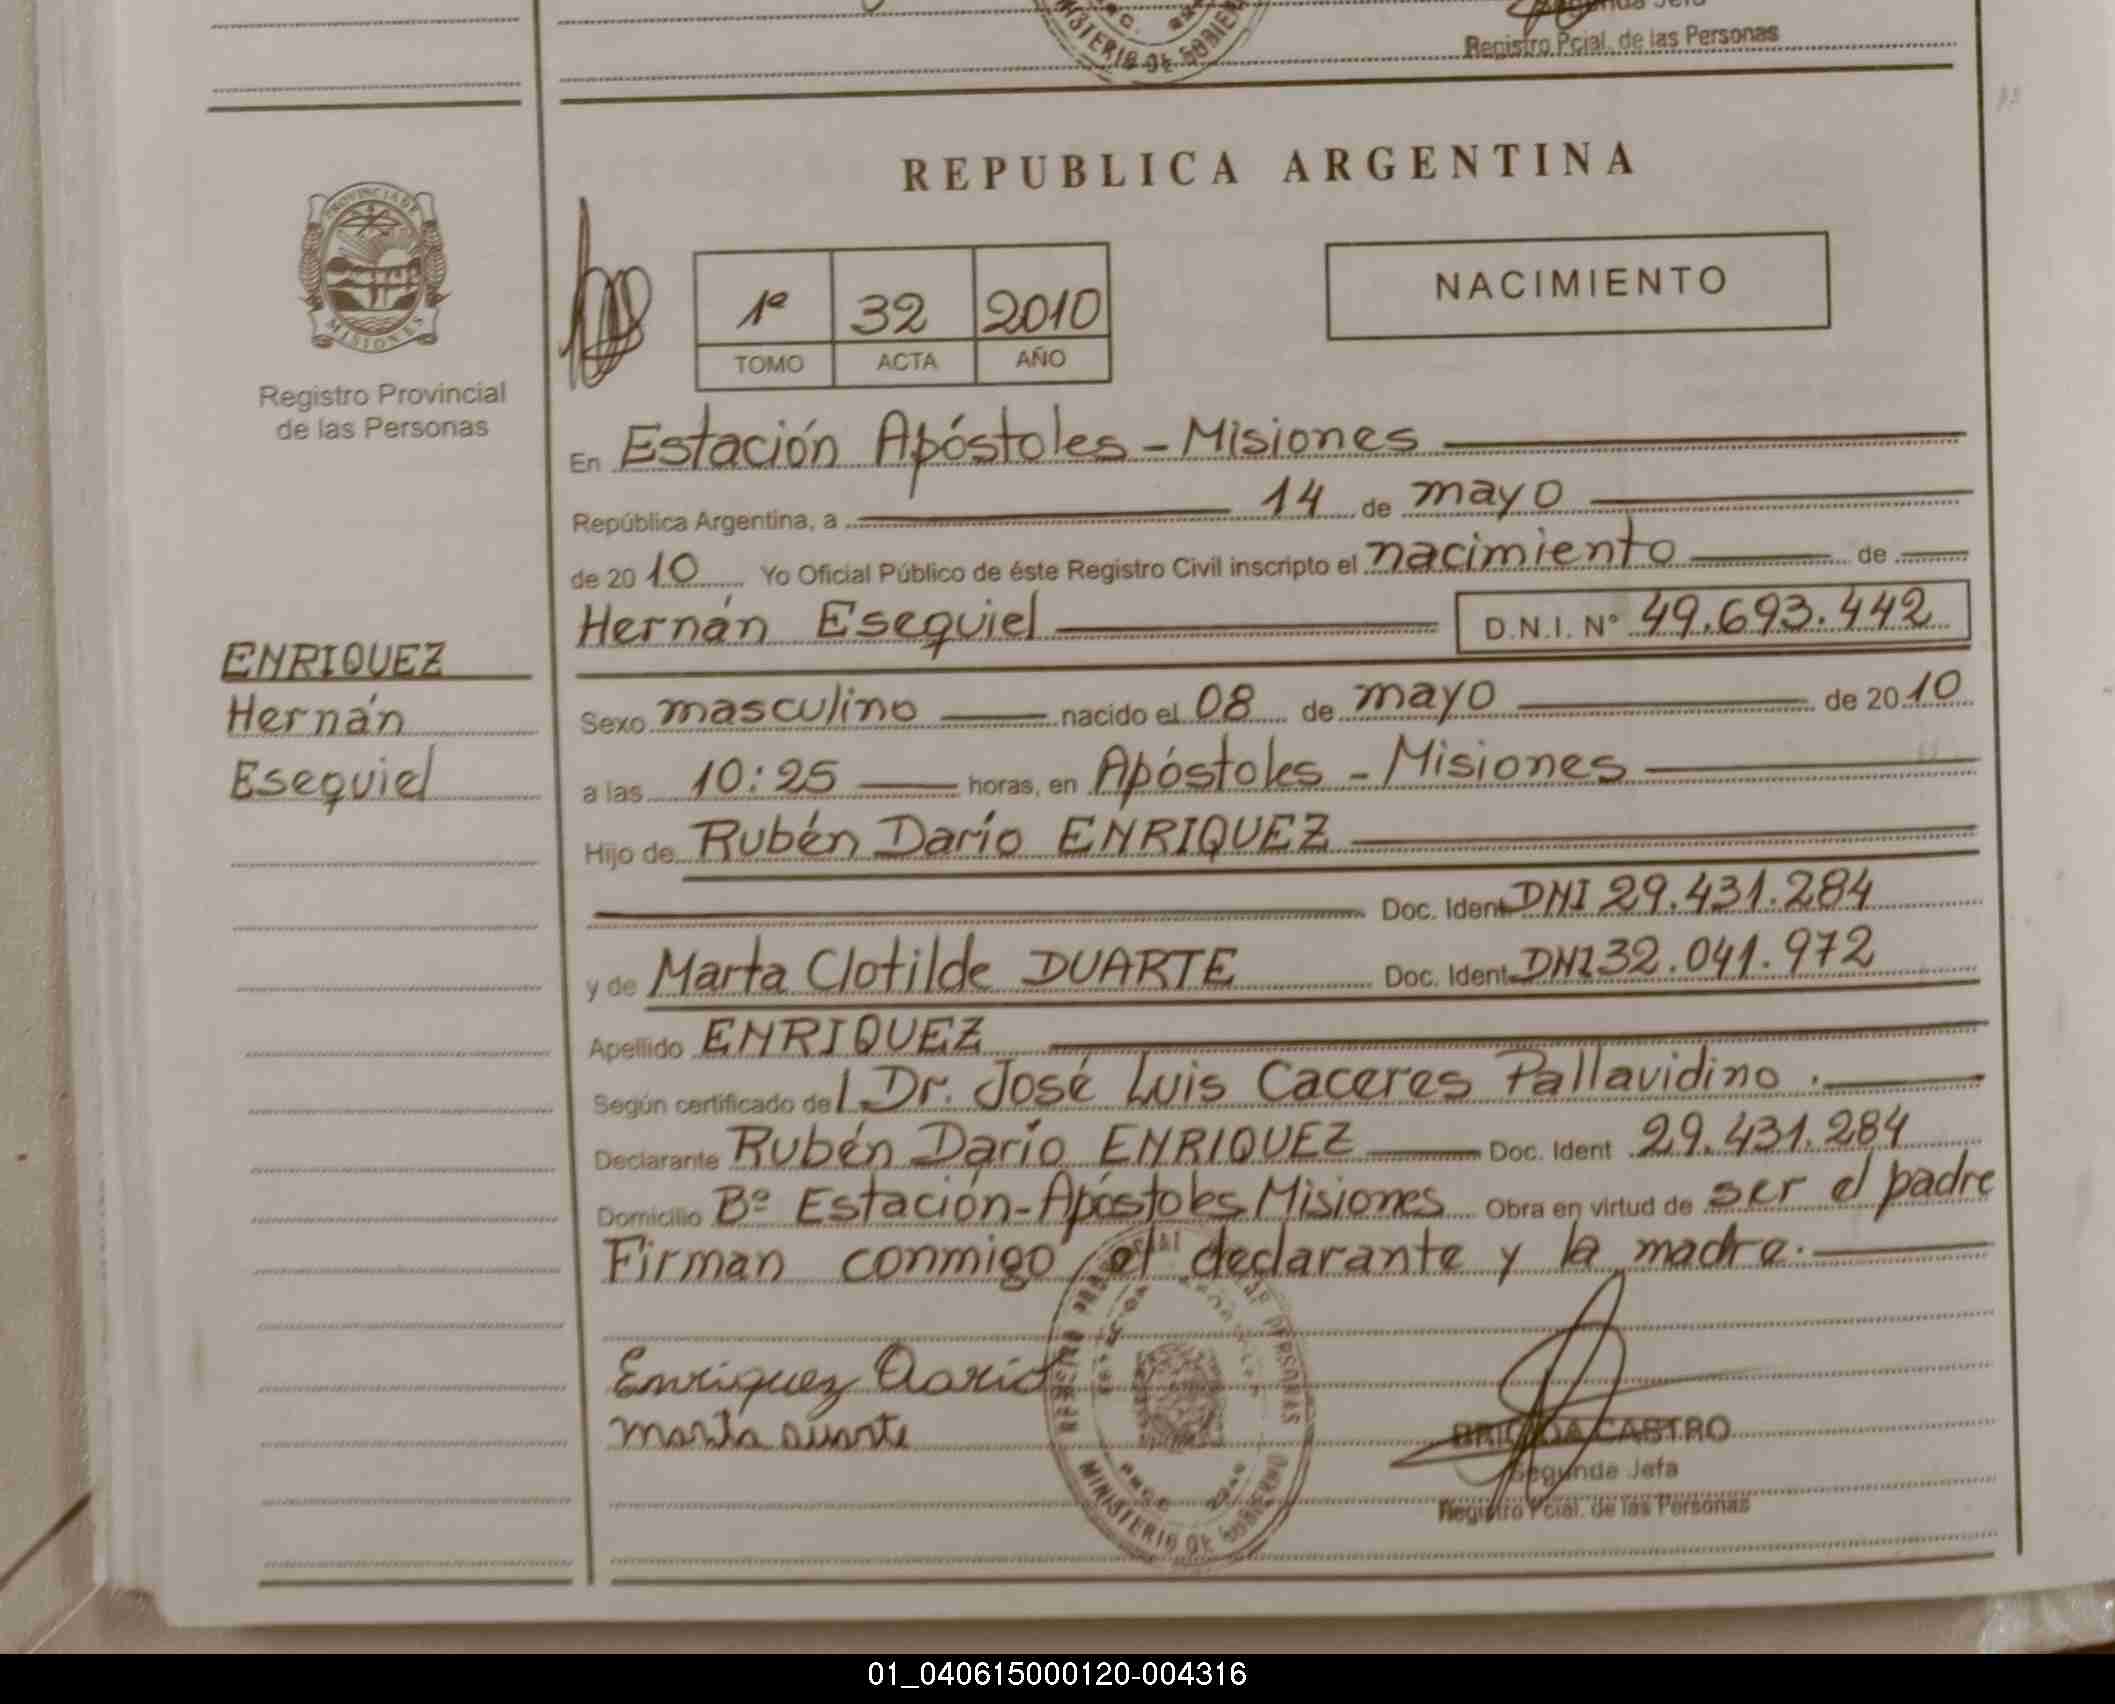 Registro Pcial. de las Personas
MINISTERIO DE GOBIERNO
REPUBLICA ARGENTINA
PROVINCIA DE
MISIONES
Registro Provincial
de las Personas
1º 32 2010
TOMO ACTA AÑO
NACIMIENTO
En Estación Apóstoles - Misiones
República Argentina, a 14 de mayo
de 2010 Yo Oficial Público de éste Registro Civil inscripto el nacimiento de
Hernán Esequiel D.N.I. Nº 49.693.442
ENRIQUEZ
Hernán
Esequiel
Sexo masculino nacido el 08 de mayo de 2010
a las 10:25 horas, en Apóstoles - Misiones
Hijo de Rubén Darío ENRIQUEZ
Doc. Ident DNI 29.431.284
y de Marta Clotilde DUARTE Doc. Ident DNI 32.041.972
Apellido ENRIQUEZ
Según certificado del Dr. José Luis Caceres Pallavidino.
Declarante Rubén Darío ENRIQUEZ Doc. Ident 29.431.284
Domicilio Bº Estación-Apóstoles Misiones Obra en virtud de ser el padre
Firman conmigo el declarante y la madre.
Enriquez Dario
Marta Duarte
MINISTERIO DE GOBIERNO
BRIGIDA CASTRO
Segunda Jefa
Registro Pcial. de las Personas
01_040615000120-004316